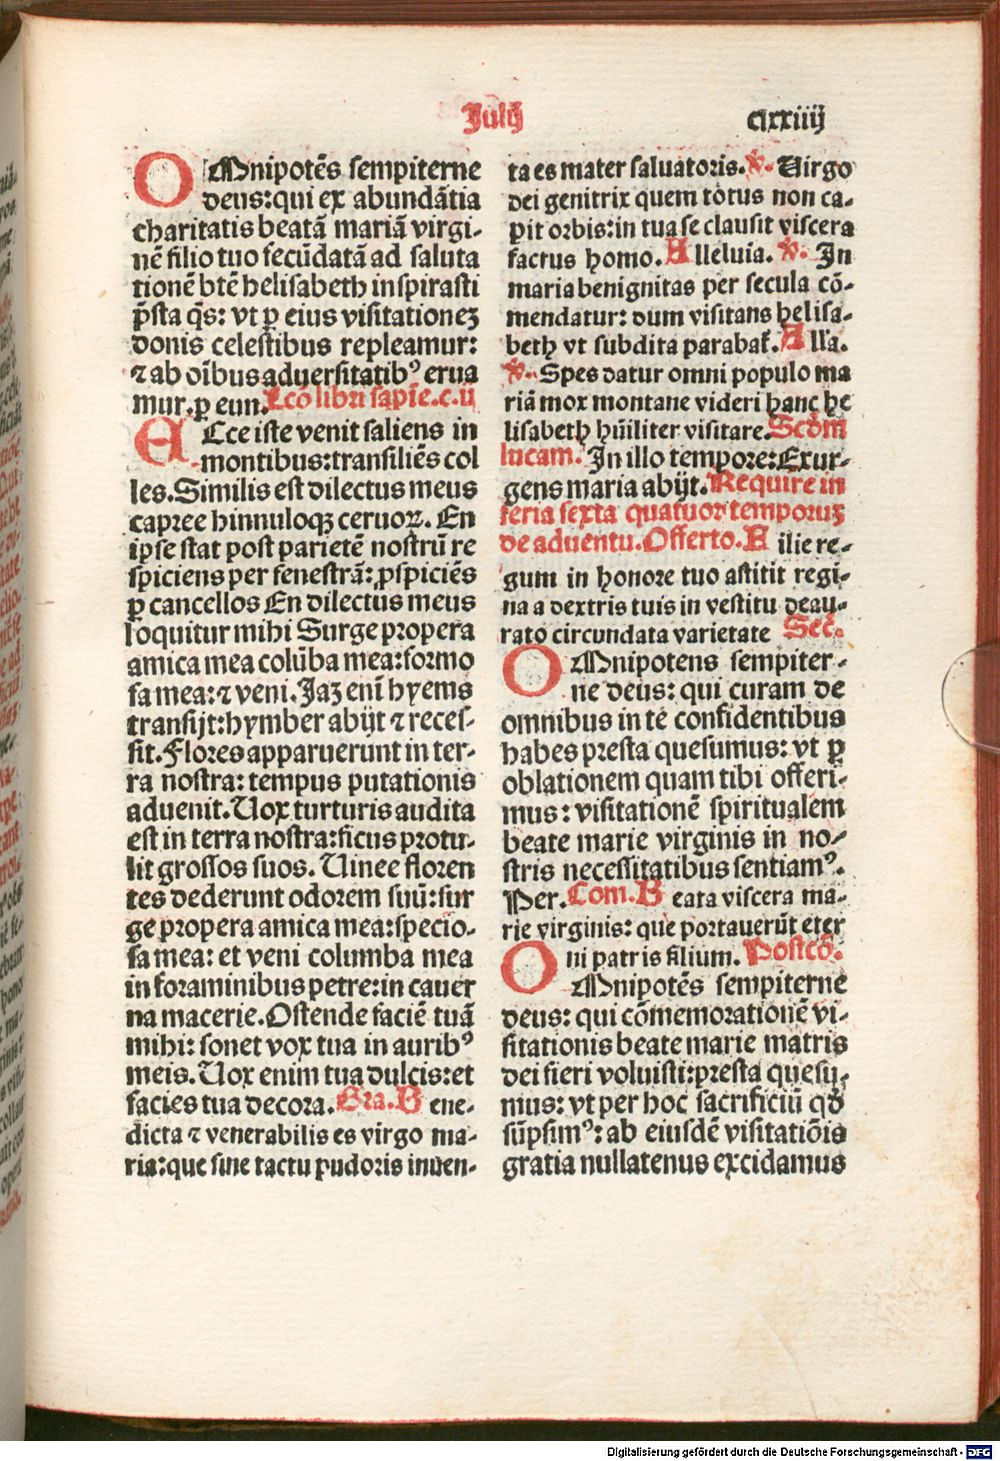 Julij
clxxiiij
OMnipotēs sempiterne
deus: qui ex abundātia
charitatis beatā mariā virgi-
nē filio tuo fecūdatā ad saluta
tionē btē helisabeth inspirasti
p̄sta q̄s: vt ꝑ eius visitationeꝫ
donis celestibus repleamur:
⁊ ab oībus aduersitatibꝰ erua
mur. ꝑ eun. Lcō libri sapīe. c. ij
ECce iste venit saliens in
montibus: transiliēs col
les. Similis est dilectus meus
capree hinnuloqꝫ ceruoꝝ. En
ipse stat post parietē nostrū re
spiciens per fenestrā: ꝓspiciēs
ꝑ cancellos En dilectus meus
loquitur mihi Surge propera
amica mea colūba mea: formo
sa mea: ⁊ veni. Jaꝫ eni hyems
transijt: hymber abijt ⁊ reces-
sit. Flores apparuerunt in ter-
ra nostra: tempus putationis
aduenit. Uox turturis audita
est in terra nostra: ficus protu-
lit grossos suos. Uinee floren
tes dederunt odorem suū: sur
ge propera amica mea: specio-
sa mea: et veni columba mea
in foraminibus petre: in cauer
na macerie. Ostende faciē tuā
mihi: sonet vox tua in auribꝰ
meis. Uox enim tua dulcis: et
facies tua decora. Gra. B ene-
dicta ⁊ venerabilis es virgo ma-
ria: que sine tactu pudoris inuen-
ta es mater saluatoris. ℣. Uirgo
dei genitrix quem totus non ca-
pit orbis: in tua se clausit viscera
factus homo. Alleluia. ℣. In
maria benignitas per secula cō-
mendatur: dum visitans helisa-
beth vt subdita parabat̄. Alla.
℣. Spes datur omni populo ma
riā mox montane videri hanc he
lisabeth hūiliter visitare. Scdm
lucam. In illo tempore: Exur-
gens maria abijt. Require in
feria sexta quatuor temporuꝫ
de aduentu. Offerto. F ilie re-
gum in honore tuo astitit regi-
na a dextris tuis in vestitu deau-
rato circundata varietate Sec̄.
OMnipotens sempiter-
ne deus: qui curam de
omnibus in te confidentibus
habes presta quesumus: vt ꝑ
oblationem quam tibi offeri-
mus: visitationē spiritualem
beate marie virginis in no-
stris necessitatibus sentiamꝰ.
Per. Com. B eata viscera ma-
rie virginis: que portauerūt eter
ni patris filium. Postcō.
OMnipotēs sempiterne
deus: qui cōmemorationē vi-
sitationis beate marie matris
dei fieri voluisti: presta quesu-
mus: vt per hoc sacrificiū qđ
sūpsimꝰ: ab eiusdē visitatiōis
gratia nullatenus excidamus
Digitalisierung gefördert durch die Deutsche Forschungsgemeinschaft - DFG